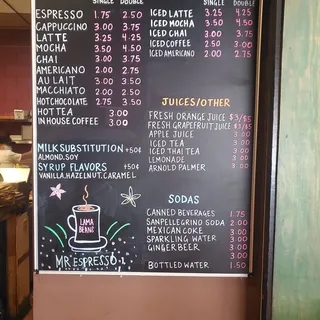 SINGLE DOUBLE
ESPRESSO 1.75 2.50
CAPPUCCINO 3.00 3.75
LATTE 3.25 4.25
MOCHA 3.50 4.50
CHAI 3.00 3.75
AMERICANO 2.00 2.75
AU LAIT 3.00 3.50
MACCHIATO 2.00 2.50
HOT CHOCOLATE 2.75 3.50
HOT TEA 3.00
IN HOUSE COFFEE 3.00
MILK SUBSTITUTION +50¢
ALMOND, SOY
SYRUP FLAVORS +50¢
VANILLA, HAZELNUT, CARAMEL
LAMA
BEANS
MR ESPRESSO
SINGLE DOUBLE
ICED LATTE 3.25 4.25
ICED MOCHA 3.50 4.50
ICED CHAI 3.00 3.75
ICED COFFEE 2.50 3.00
ICED AMERICANO 2.00 2.75
JUICES/OTHER
FRESH ORANGE JUICE $3/$5
FRESH GRAPEFRUIT JUICE $3/$5
APPLE JUICE 3.00
ICED TEA 3.00
ICED THAI TEA 3.00
LEMONADE 3.00
ARNOLD PALMER 3.00
SODAS
CANNED BEVERAGES 1.75
SANPELLEGRINO SODA 2.00
MEXICAN COKE 3.00
SPARKLING WATER 3.00
GINGER BEER 3.00
3.00
BOTTLED WATER 1.50